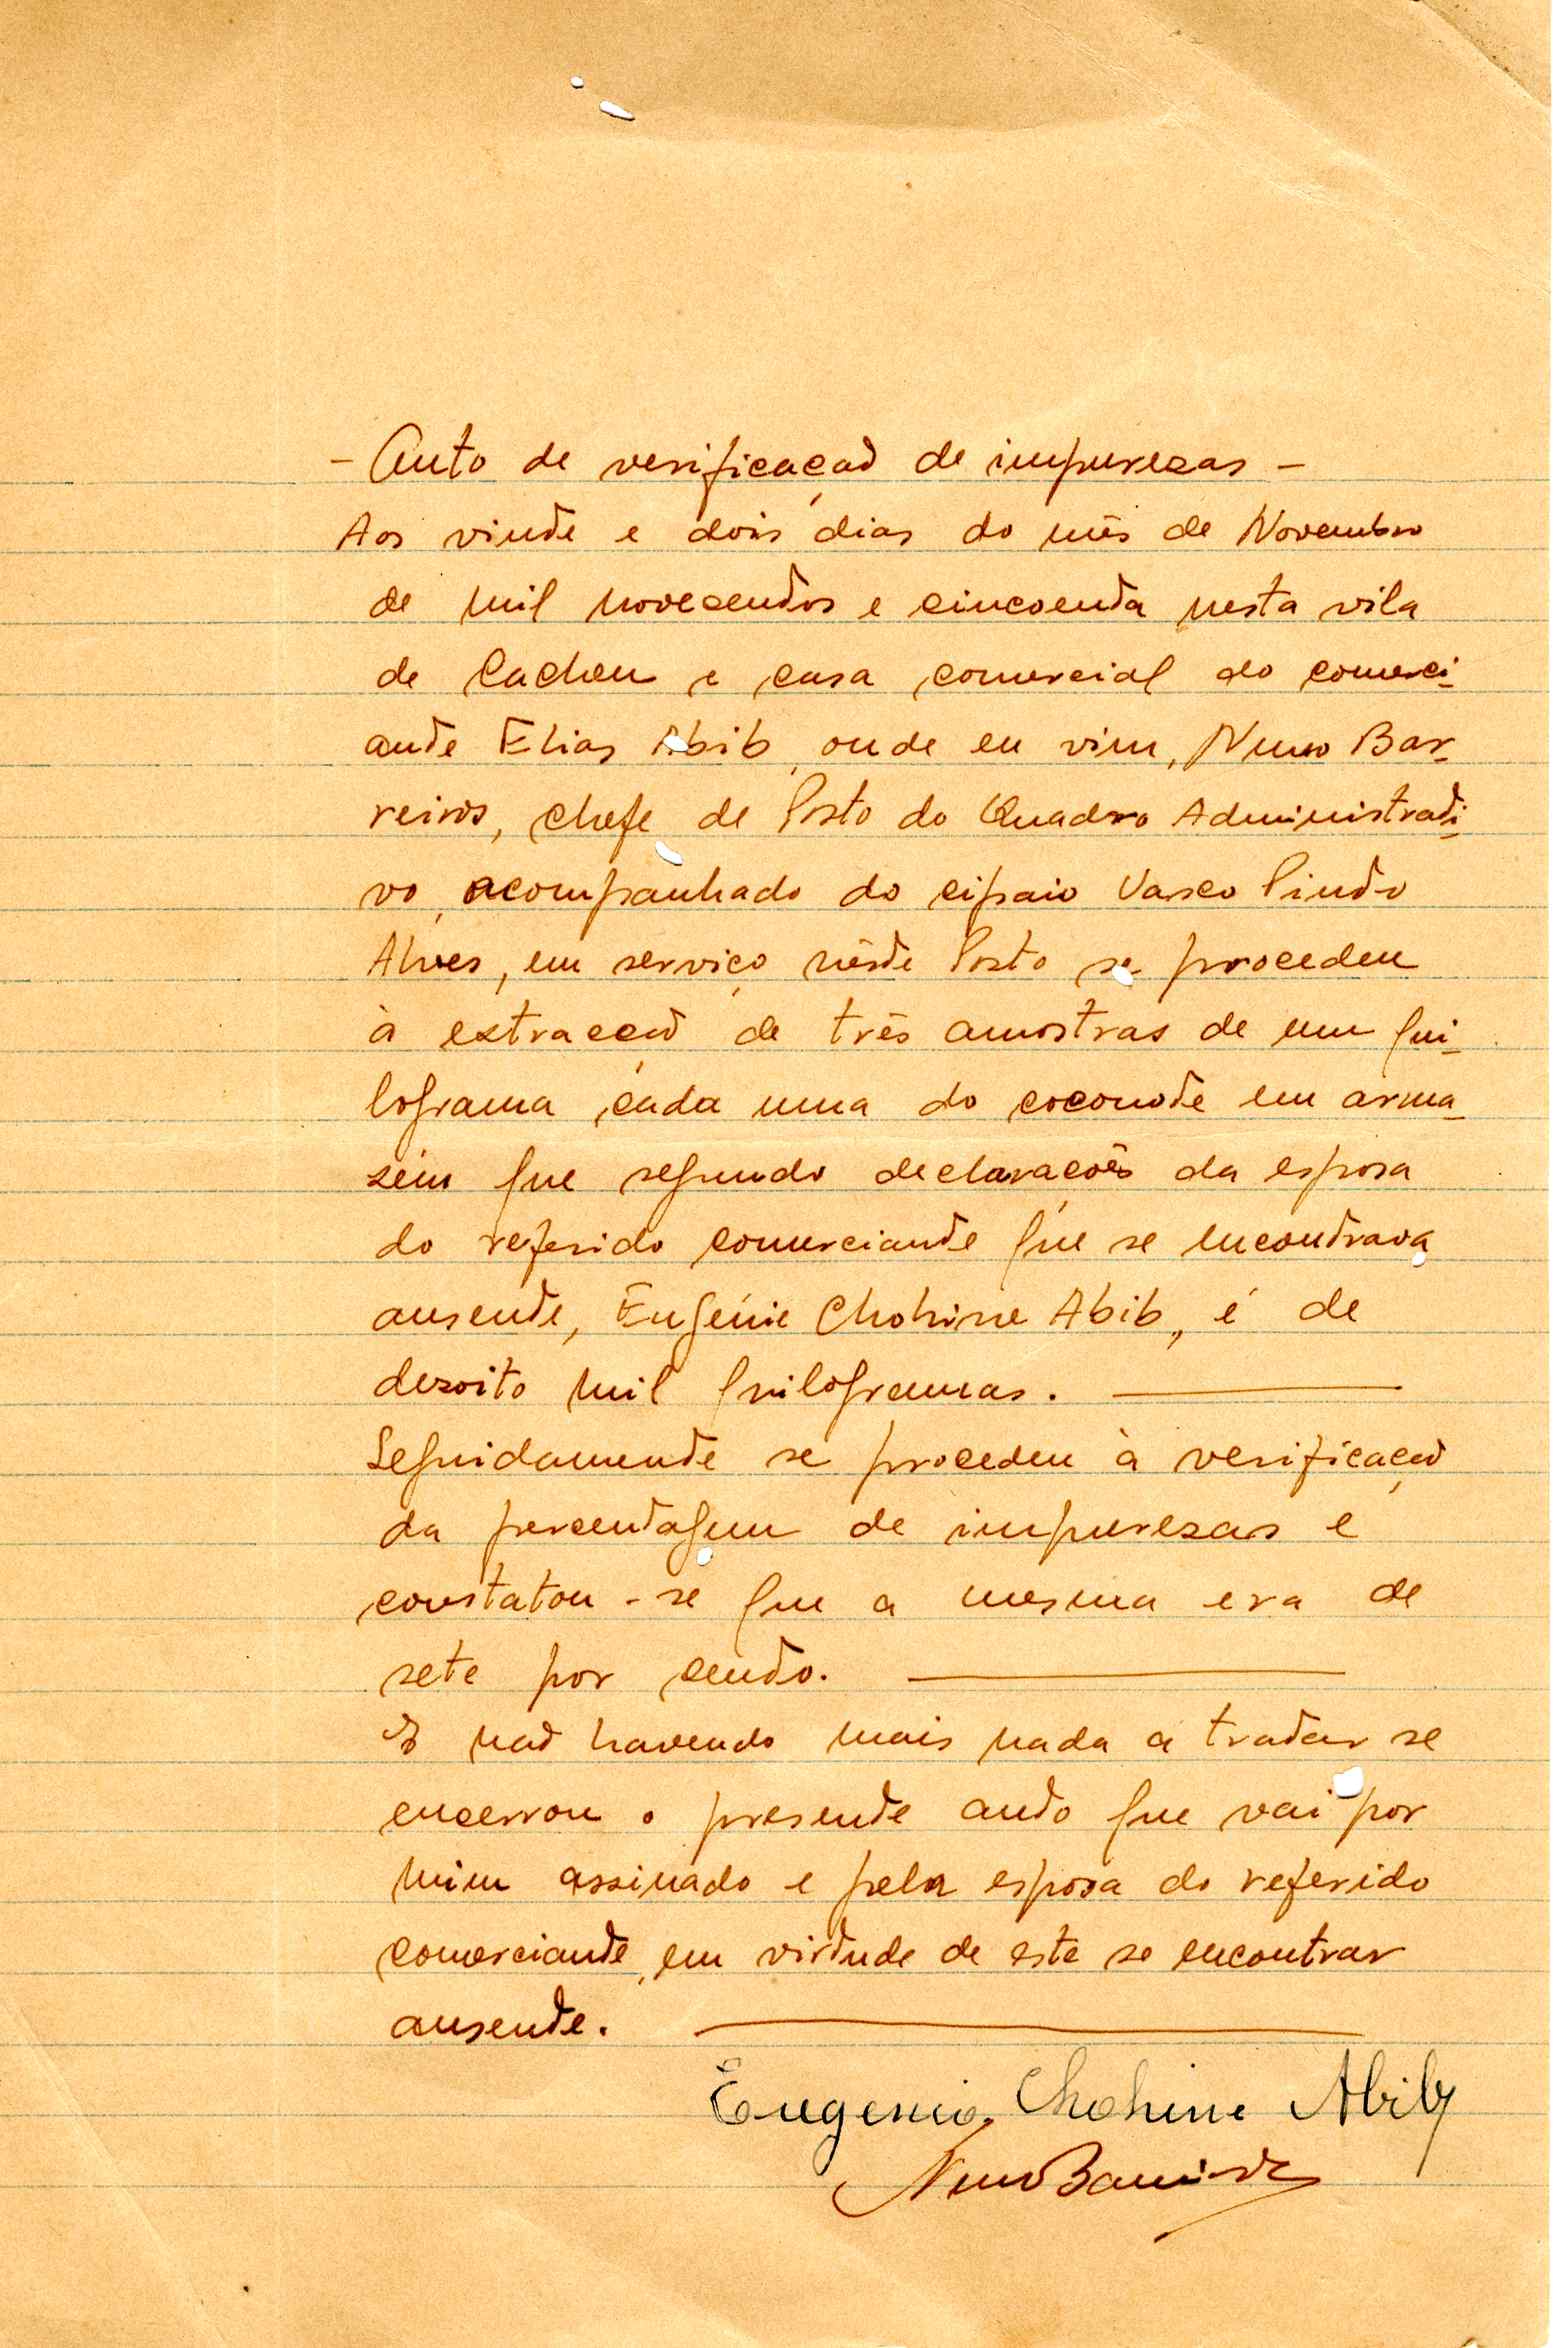 - Auto de verificação de impurezas -
Aos vinte e dois dias do mês de Novembro
de mil novecentos e cincoenta nesta vila
de Cacheu e casa comercial do comerci-
ante Elias Abib, onde eu vim, Nuno Bar-
reiros, chefe de Posto do Quadro Administrati-
vo, acompanhado do cipaio Vasco Pinto
Alves, em serviço nêste Posto se procedeu
à extracção de três amostras de um qui-
lograma cada uma do coconote em arma-
zém que segundo declarações da esposa
do referido comerciante que se encontrava
ausente, Eugénie Chohine Abib, é de
dezoito mil quilogramas.
Seguidamente se procedeu à verificação
da percentagem de impurezas e
constatou-se que a mesma era de
sete por cento.
E não havendo mais nada a tratar se
encerrou o presente auto que vai por
mim assinado e pela esposa do referido
comerciante, em virtude de este se encontrar
ausente.
Eugenie Chohine Abib
Nuno Barreiros